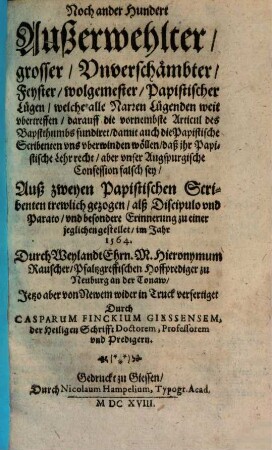 Noch ander Hundert
Außerwehlter /
grosser / Vnverschämbter /
Feyster / wolgemester / Papistischer
Lügen / welche alle Narren Lügenden weit
vbertreffen / darauff die vornembste Articul des
Bapstthumbs fundiret / damit auch die Papistische
Scribenten vns vberwinden wöllen / daß ihr Papi-
stische Lehr recht / aber vnser Augspurgische
Confession falsch sey /
Auß zweyen Papistischen Scri-
benten trewlich gezogen / alß Discipulo vnd
Parato / vnd besondere Erinnerung zu einer
jeglichen gestellet / im Jahr
1564.
Durch Weylandt Ehrn. M. Hieronymum
Rauscher / Pfaltzgreffischen Hoffprediger zu
Neuburg an der Tonaw /
Jetzo aber von Newem wider in Truck verfertiget
Durch
CASPARUM FINCKIUM GIESSENSEM,
der Heiligen Schrifft Doctorem, Professorem
vnd Predigern.
Gedruckt zu Giessen /
Durch Nicolaum Hampelium, Typogr. Acad.
M DC XVIII.